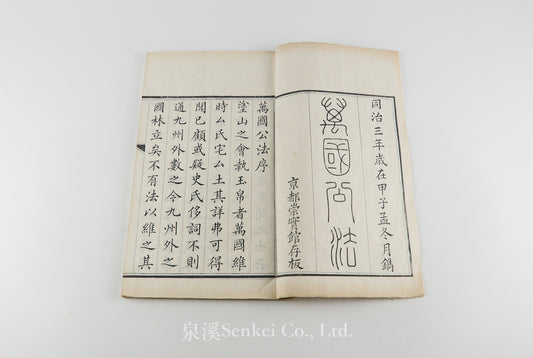 同治三年歲在甲子孟冬月鐫
萬國公法
京都崇實館存板
萬國公法序
塗山之會執玉帛者萬國維
時厶氏宅厶土其詳弗可得
聞已顧或疑史氏侈詞不則
通九州外數之今九州外之
國林立矣不有法以維之其
泉溪Senkei Co., Ltd.